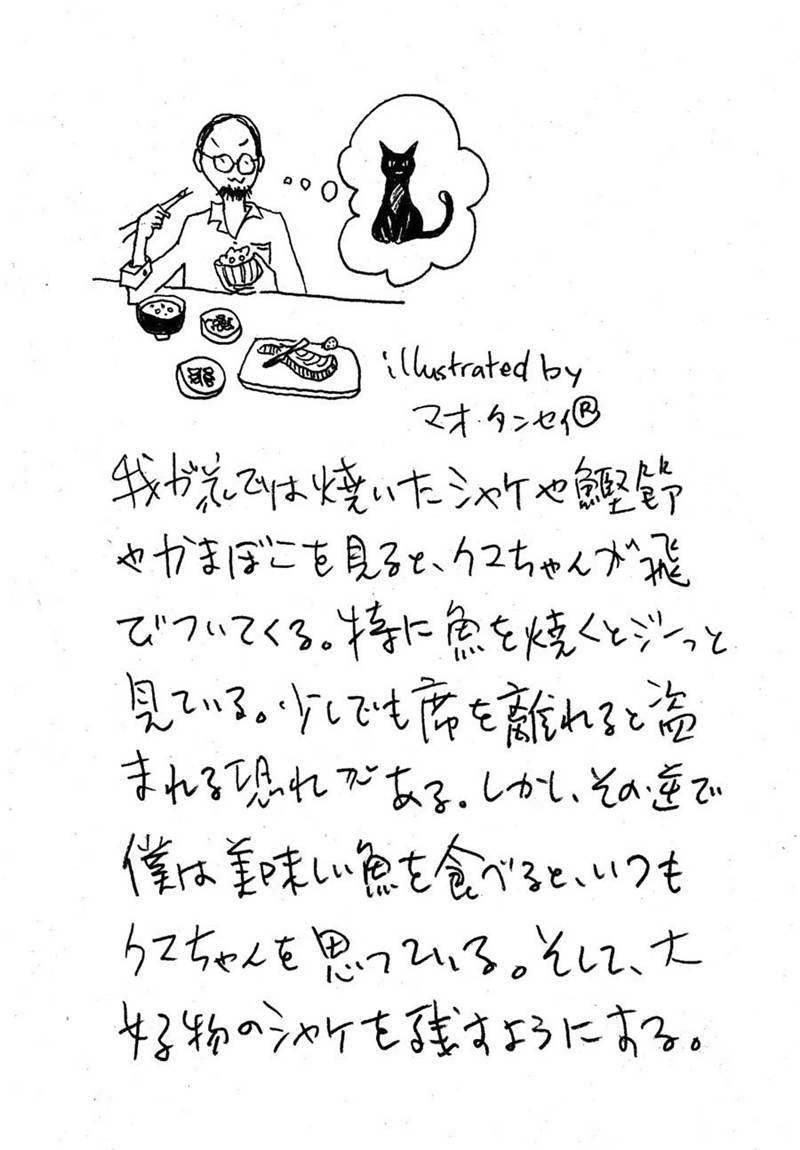 illustrated by
マオ・タンセイ®
我が家では焼いたシャケや鰹節
やかまぼこを見ると、クマちゃんが飛
びついてくる。特に魚を焼くとジーっと
見ている。少しでも席を離れると盗
まれる恐れがある。しかし、その逆で
僕は美味しい魚を食べると、いつも
クマちゃんを思っている。そして、大
好物のシャケを残すようにする。